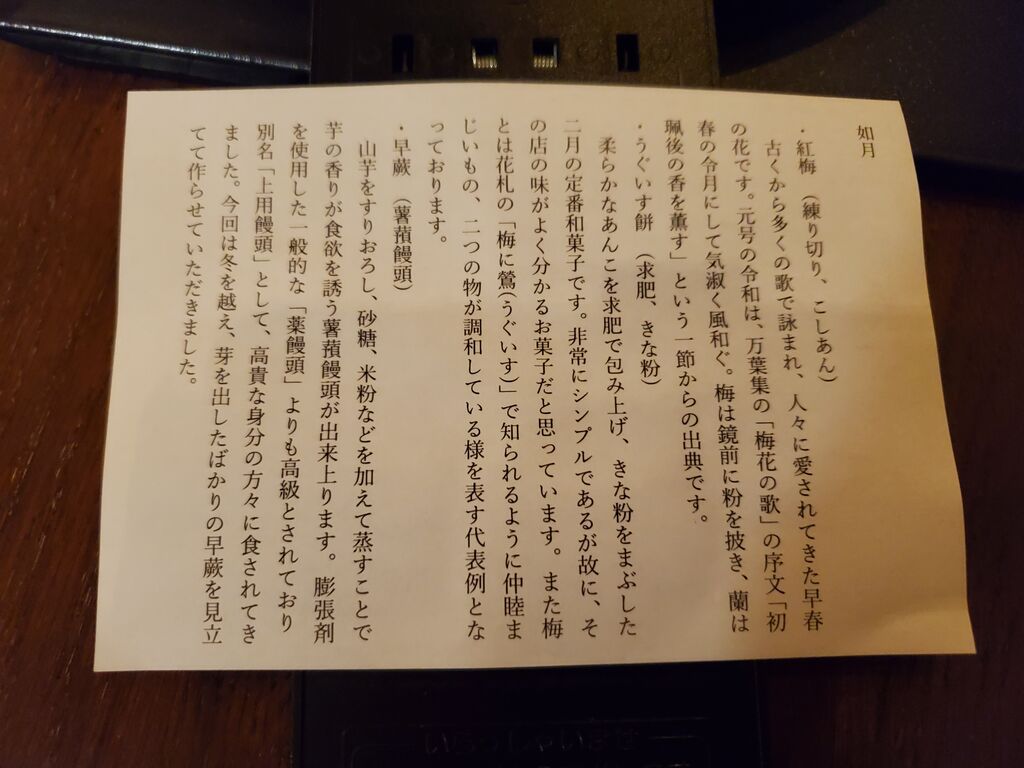 如月
・紅梅　（練り切り、こしあん）
　古くから多くの歌で詠まれ、人々に愛されてきた早春
の花です。元号の令和は、万葉集の「梅花の歌」の序文「初
春の令月にして気淑く風和ぐ。梅は鏡前に粉を披き、蘭は
珮後の香を薫す」という一節からの出典です。
・うぐいす餅　（求肥、きな粉）
　柔らかなあんこを求肥で包み上げ、きな粉をまぶした
二月の定番和菓子です。非常にシンプルであるが故に、そ
の店の味がよく分かるお菓子だと思っています。また梅
とは花札の「梅に鶯(うぐいす)」で知られるように仲睦ま
じいもの、二つの物が調和している様を表す代表例とな
っております。
・早蕨　（薯蕷饅頭）
　山芋をすりおろし、砂糖、米粉などを加えて蒸すことで
芋の香りが食欲を誘う薯蕷饅頭が出来上ります。膨張剤
を使用した一般的な「薬饅頭」よりも高級とされており
別名「上用饅頭」として、高貴な身分の方々に食されてき
ました。今回は冬を越え、芽を出したばかりの早蕨を見立
てて作らせていただきました。
いらっしゃいませ